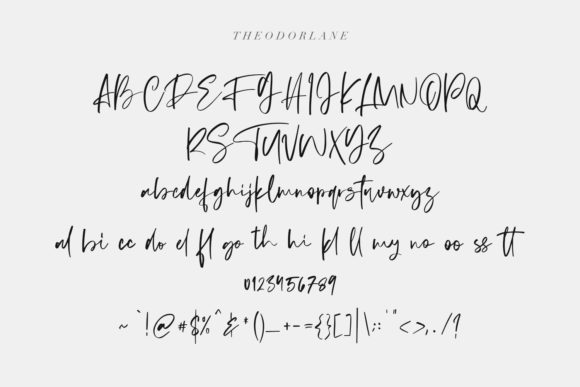 THEODORLANE
ABCDEFGHIJKLMNOPQ
RSTUVWXYZ
abcdefghijklmnopqrstuvwxyz
al bi cc do el fl go th hi kl ll my no oo ss tt
0123456789
~`!@#$%^&*()_+-={}[]|\:;'"<>,./?